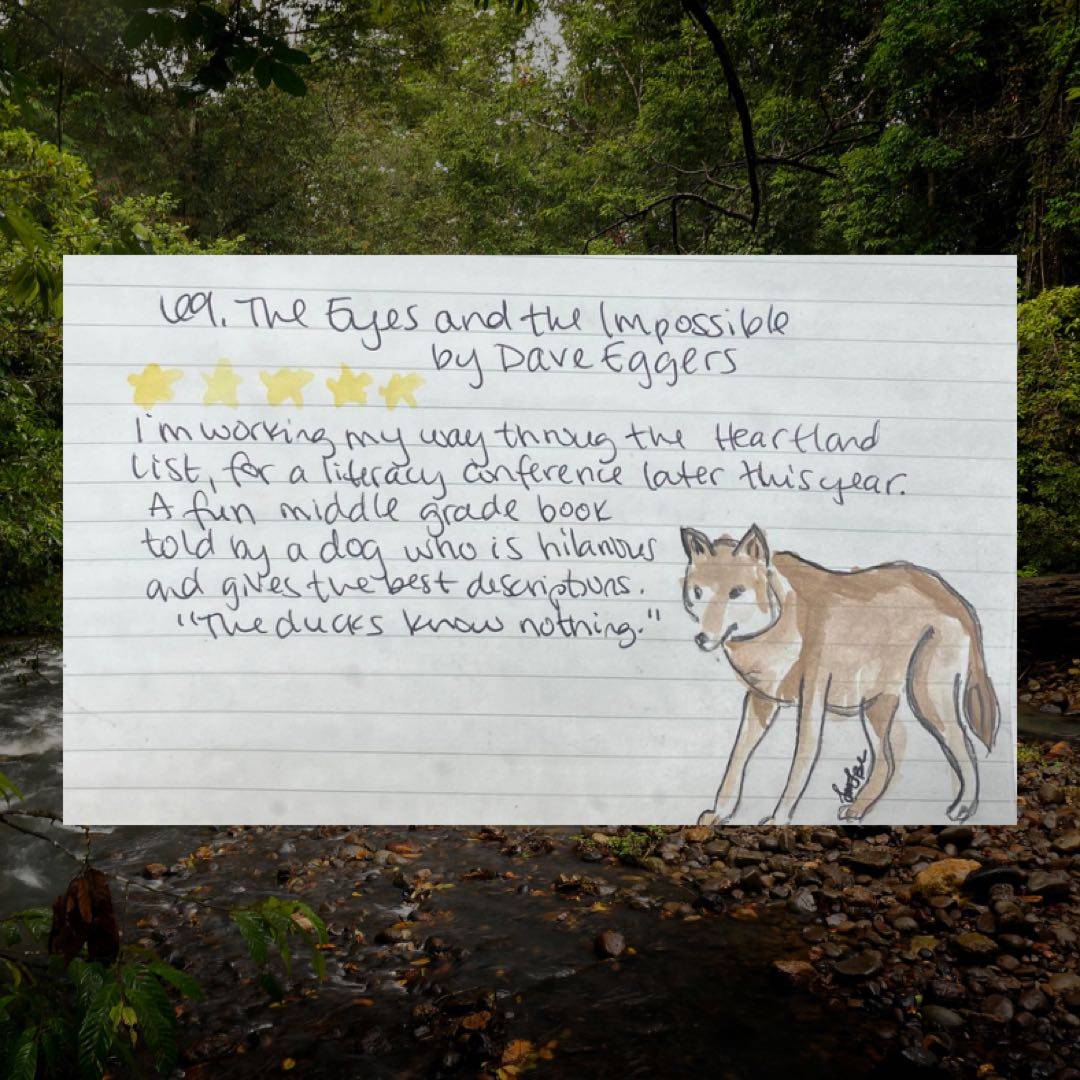 69. The Eyes and the Impossible
by Dave Eggers
I'm working my way throug the Heartland
List, for a literacy conference later this year.
A fun middle grade book
told by a dog who is hilarious
and gives the best descriptions.
"The ducks know nothing."